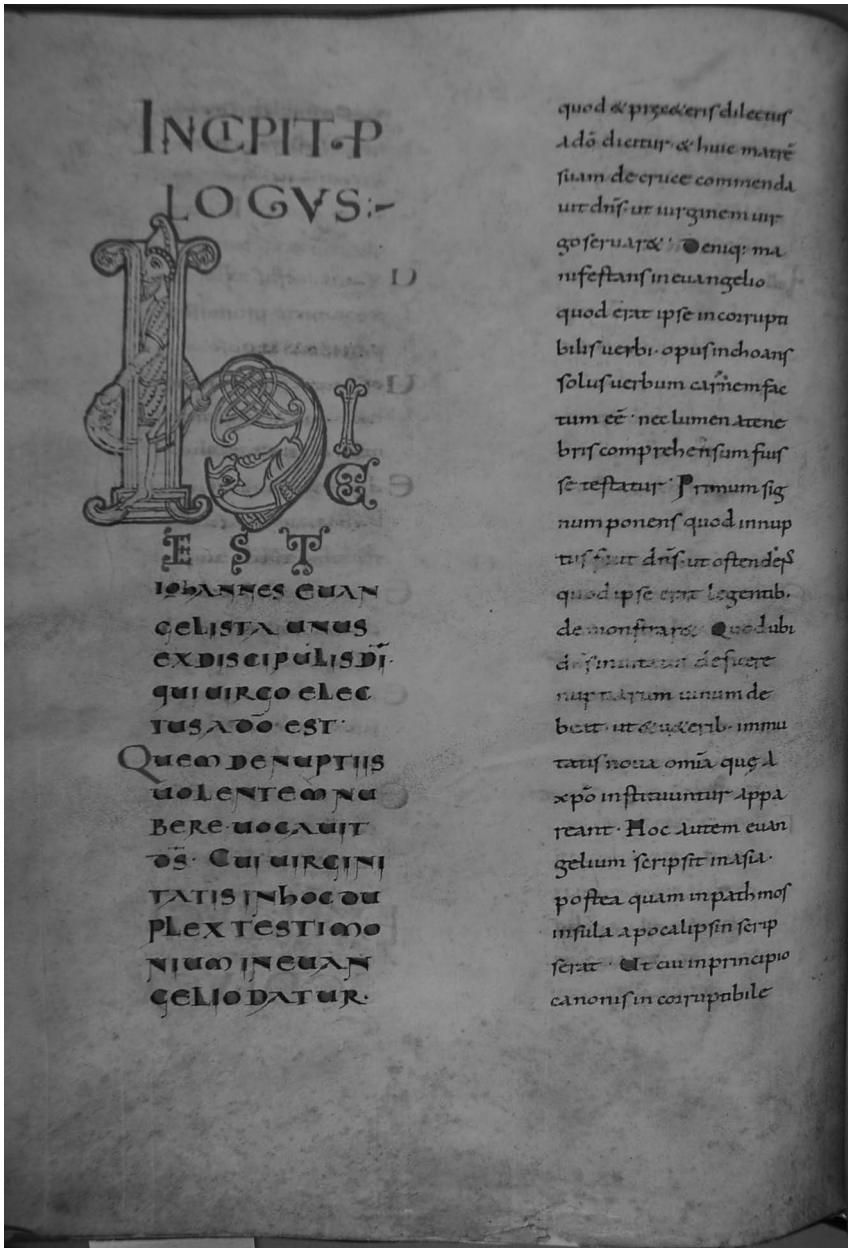 INCIPIT P
LOGVS:-
HIC
EST
IOhANNES EUAN
GELISTA UNUS
EXDISCIPULIS DĪ·
QUI UIRGO ELEC
TUS A DŌ EST·
QUEM DE NUPTIIS
UOLENTEM NU
BERE UOCAUIT
DS̄· CUI UIRGINI
TATIS IN hOC DU
PLEX TESTIMO
NIUM IN EUAN
GELIO DATUR·
quod & pre c&eris dilectus
adō dicitur· & huic matrē
suam de cruce commenda
uit dn̄s· ut uirginem uir
go seruar&· Deniq: ma
nifestans in euangelio
quod erat ipse incorrupti
bilis uerbi· opus inchoans
solus uerbum carnem fac
tum eē· nec lumen atene
bris comprehensum fuis
se testatur· Primum sig
num ponens quod in nup
tiis fecit dn̄s· ut ostenders
quod ipse erat legentib·
demonstrar& Quod ubi
dn̄s inuitatus deficere
nuptiarum uinum de
beat· ut & u&erib· immu
tatis noua omīa quę a
xpō instituuntur appa
reant· Hoc autem euan
gelium scripsit in asia·
postea quam in pathmos
insula apocalipsin scrip
serat· Ut cui in principio
canonis in corruptibile